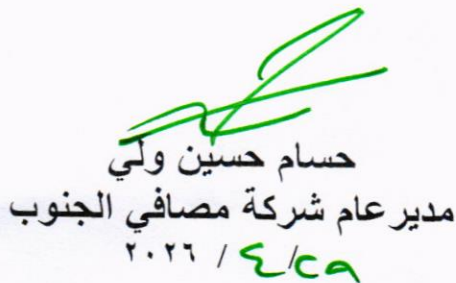 حسام حسين ولي
مدير عام شركة مصافي الجنوب
٢٩/٤ / ٢٠٢٦